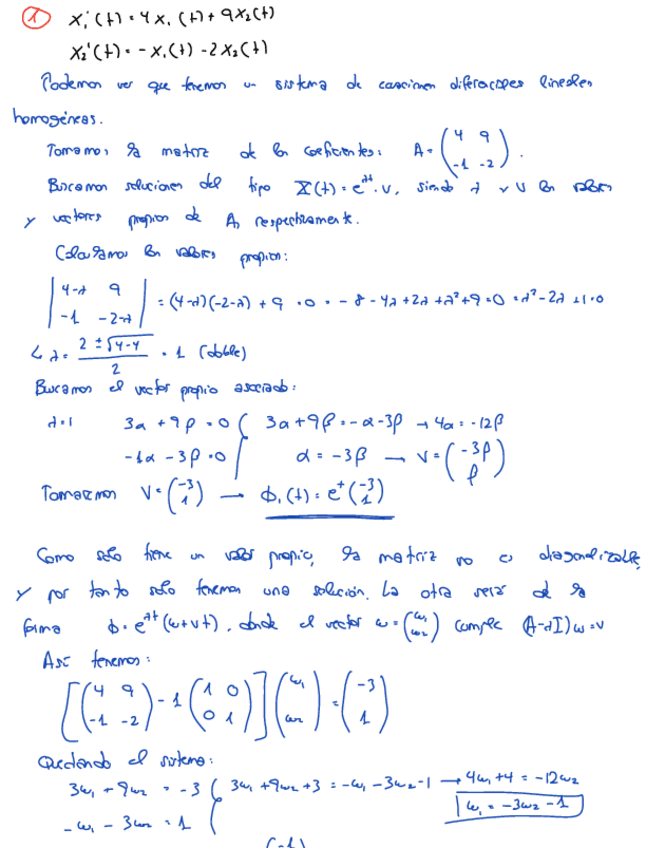 1 x₁'(t) = 4x₁(t) + 9x₂(t)
x₂'(t) = -x₁(t) - 2x₂(t)
Podemos ver que tenemos un sistema de ecuaciones diferenciales lineales
homogéneas.
Tomamos la matriz de los coeficientes: A = (4 9; -1 -2).
Buscamos soluciones del tipo X(t) = e^λt · v, siendo λ y v los valores
y vectores propios de A, respectivamente.
Calculamos los valores propios:
|4-λ 9; -1 -2-λ| = (4-λ)(-2-λ) + 9 = 0 = -8 - 4λ + 2λ + λ² + 9 = 0 = λ² - 2λ + 1 = 0
↳ λ = (2 ± √(4-4))/2 = 1 (doble)
Buscamos el vector propio asociado:
λ=1 3α + 9β = 0 { 3α + 9β = -α - 3β → 4α = -12β
-1α - 3β = 0 α = -3β → v = (-3β; β)
Tomaremos v = (-3; 1) → ϕ₁(t) = e^t (-3; 1)
Como solo tiene un valor propio, la matriz no es diagonalizable,
y por tanto solo tenemos una solución. La otra será de la
forma ϕ = e^λt (w + vt), donde el vector w = (w₁; w₂) cumple (A-λI)w = v
Así tenemos:
[(4 9; -1 -2) - 1 (1 0; 0 1)] (w₁; w₂) = (-3; 1)
Quedando el sistema:
3w₁ + 9w₂ = -3 { 3w₁ + 9w₂ + 3 = -w₁ - 3w₂ - 1 → 4w₁ + 4 = -12w₂
-w₁ - 3w₂ = 1 w₁ = -3w₂ - 1